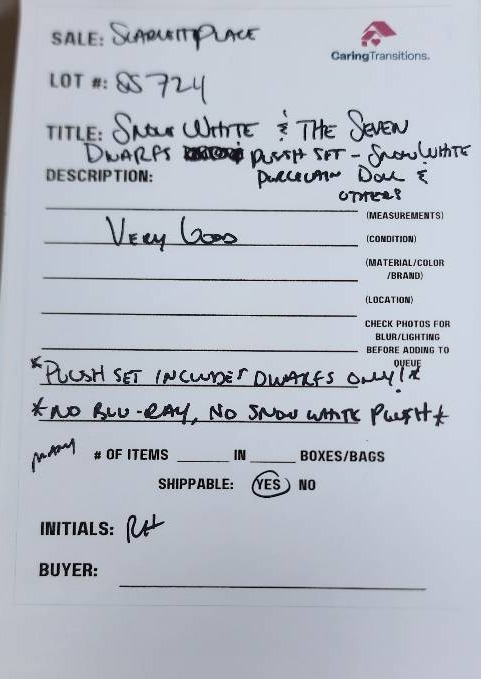 SALE: SCARLETT PLACE
CaringTransitions.
LOT #: SS 724
TITLE: SNOW WHITE & THE SEVEN
DWARFS PLUSH SET - SNOW WHITE
DESCRIPTION: PORCELAIN DOLL &
OTHERS
(MEASUREMENTS)
VERY GOOD (CONDITION)
(MATERIAL/COLOR
/BRAND)
(LOCATION)
CHECK PHOTOS FOR
BLUR/LIGHTING
BEFORE ADDING TO
QUEUE
*PLUSH SET INCLUDES DWARFS ONLY!*
*NO BLU-RAY, NO SNOW WHITE PLUSH*
MANY # OF ITEMS ______ IN _____ BOXES/BAGS
SHIPPABLE: YES NO
INITIALS: RH
BUYER: